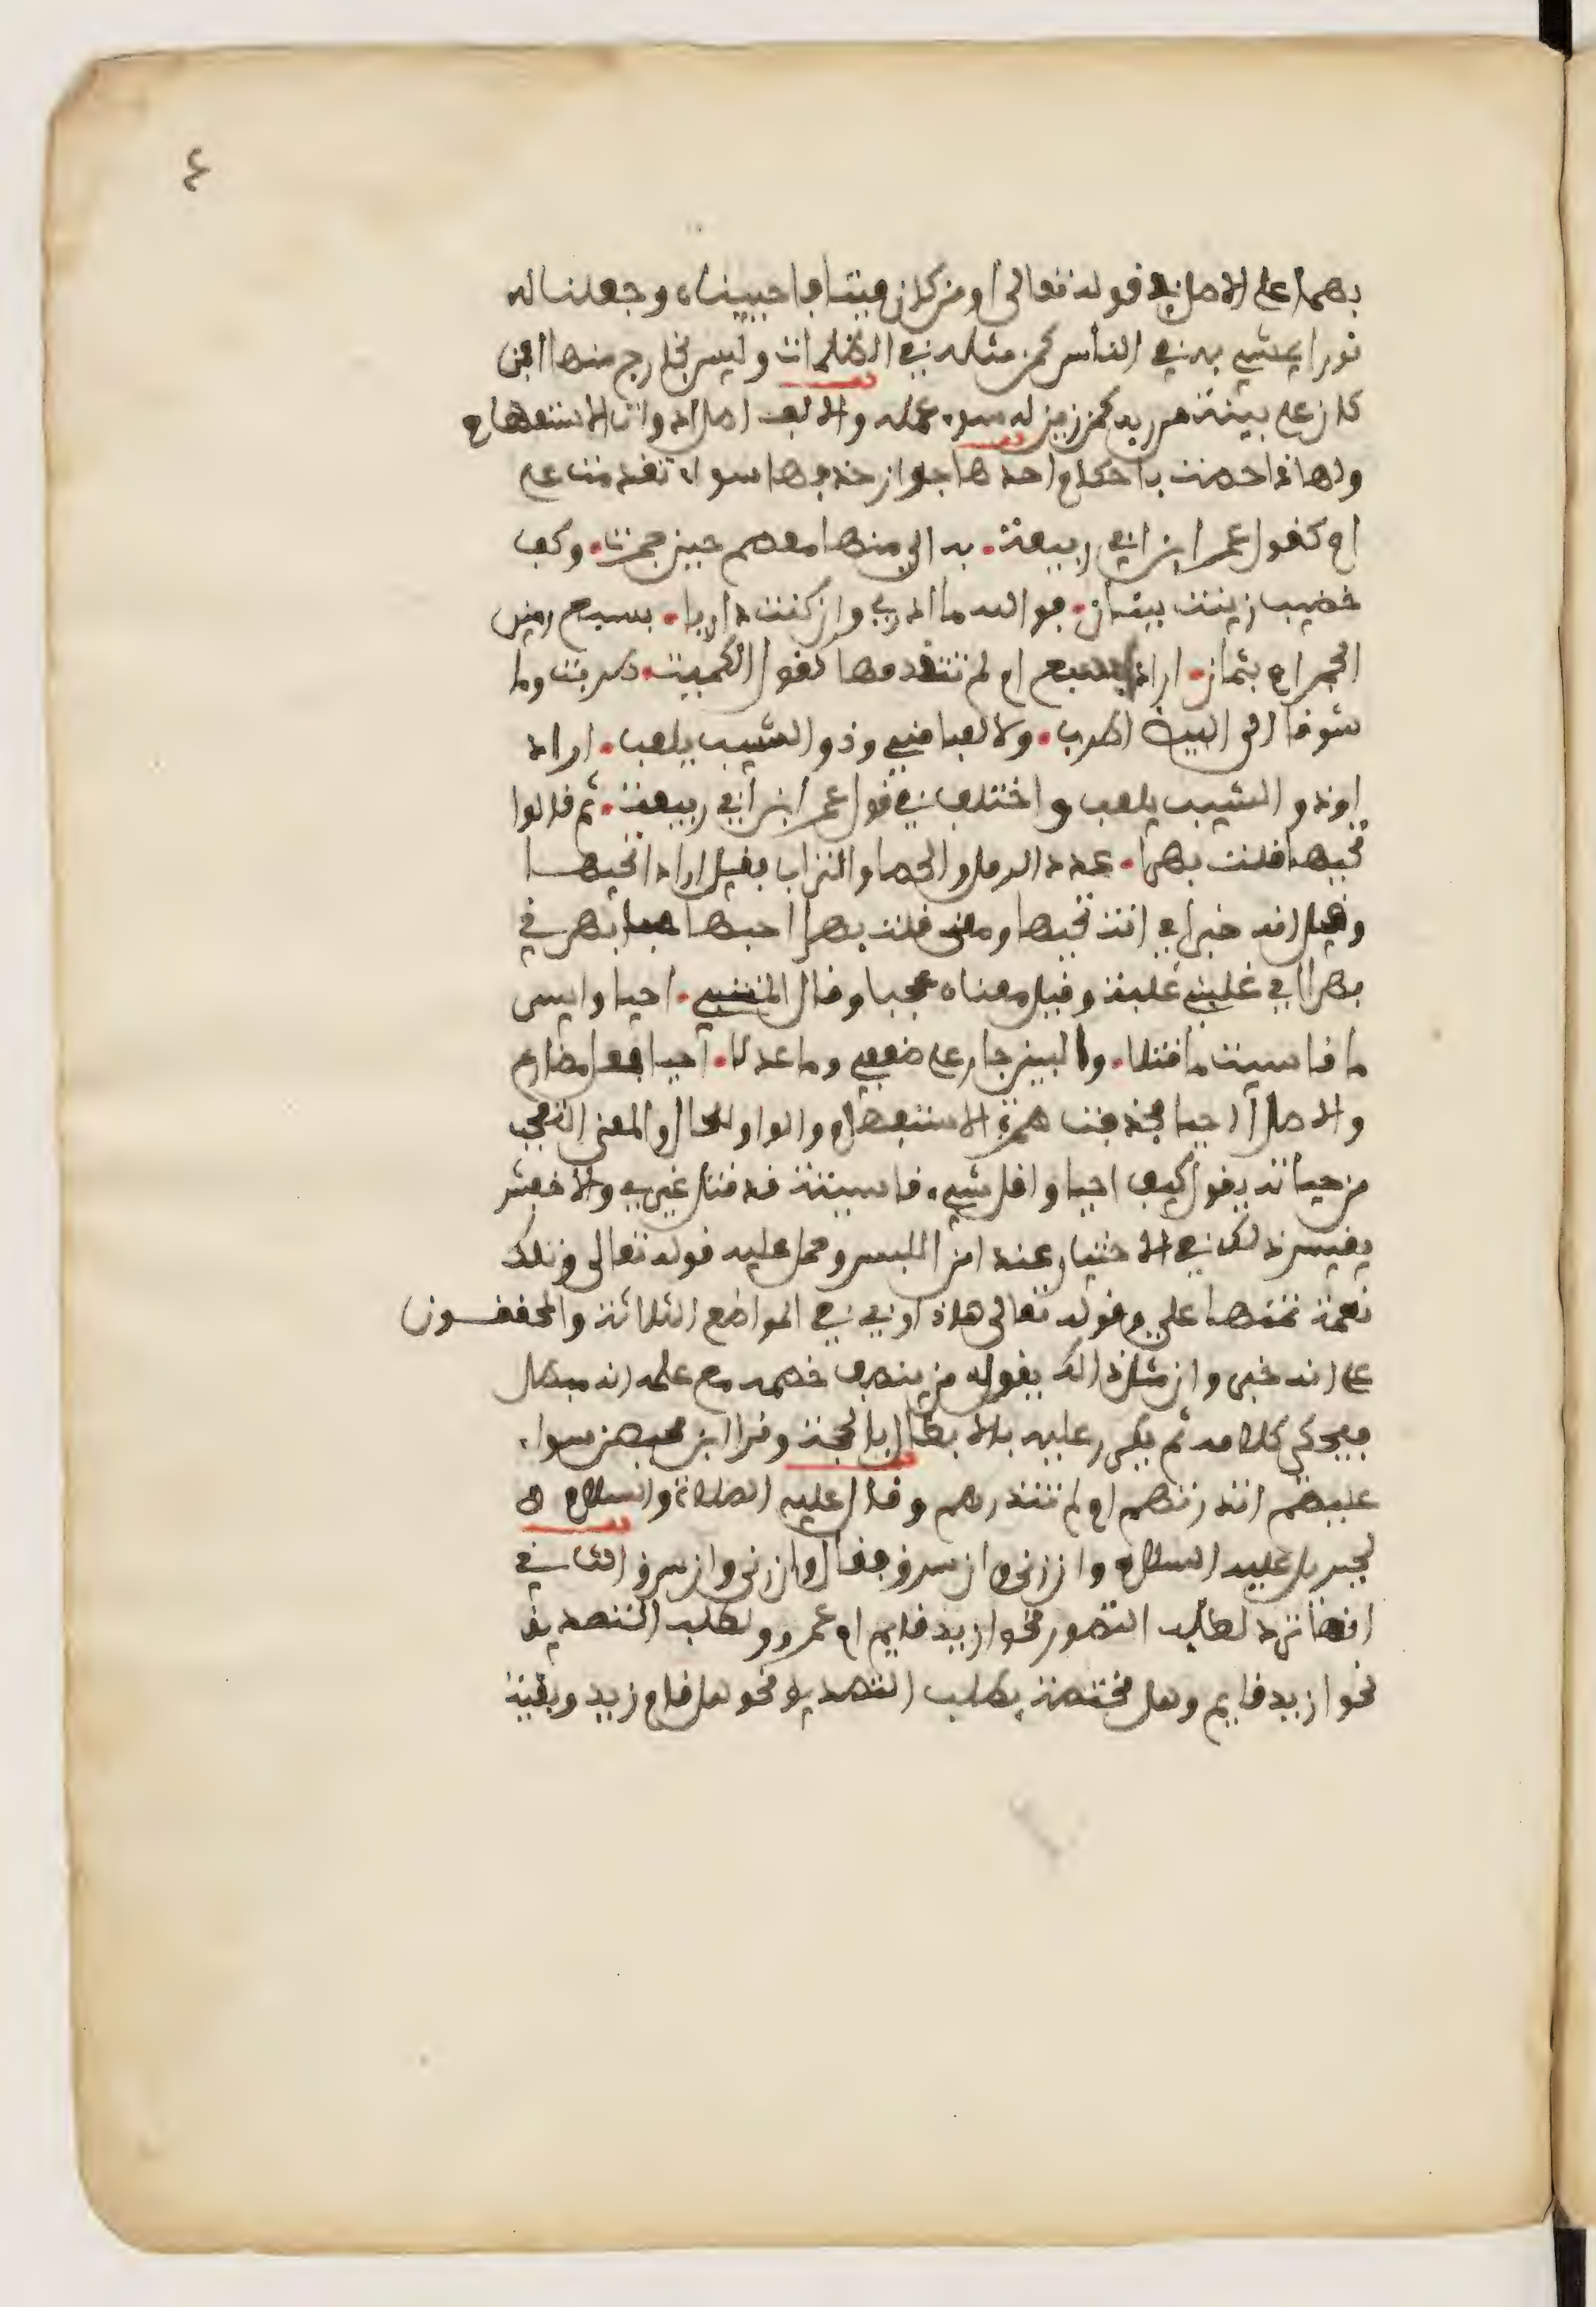 ٤
بهما على الاصل في قوله تعالى أومن كان ميتا فاحييناه وجعلنا له
نورا يمشي به في الناس كمن مثله في الظلمات وليس بخارج منها افمن
كان على بينة من ربه كمن زين له سوء عمله والالف اصل ادوات الاستفهام
ولهاذا خصت باحكام احدها جواز حذفها سواء تقدمت على
ام كقول عمر ابن ابي ربيعة. بدا لي منها معصم حين جمرت. وكف
خضيب زينت ببنان. فوالله ما ادري وان كنت داريا. بسبع رمين
الجمر ام بثمان. اراد ابسبع ام لم تتقدمها كقول الكميت. طربت وما
شوقا الى البيض اطرب. ولا لعبا مني وذو الشيب يلعب. اراد
اوذو الشيب يلعب واختلف في قول عمر ابن أبي ربيعة. ثم قالوا
تحبها قلت بهرا. عدد الرمل والحصا والتراب فقيل اراد اتحبها
وقيل انه خبر اي انت تحبها ومعنى قلت بهرا احبها حبا بهرني
بهرا اي غلبني غلبة وقيل معناه عجبا وقال المتنبي. احيا وايسر
ما قاسيت ما قتلا. والبين جار على ضعفي وما عدلا. أحيا فعل مضارع
والاصل أاحيا فحذفت همزة الاستفهام والواو للحال والمعنى التعجب
من حياته يقول كيف احيا واقل شيء قاسيته قد قتل غيري والاخفش
يقيس ذلك في الاختيار عند امن اللبس وحمل عليه قوله تعالى وتلك
نعمة تمنها علي وقوله تعالى هاذا ربي في المواضع الثلاثة والمحققون
على انه خبر وان مثل ذالك يقوله من ينصف خصمه مع علمه انه مبطل
فيحكي كلامه ثم يكر عليه بالابطال بالحجة وقرا ابن محيصن سواء
عليهم انذرتهم ام لم تنذرهم وقال عليه الصلاة والسلام
لجبريل عليه السلام وان زنى وان سرق فقال وان زنى وان سرق الثاني
انها ترد لطلب التصور نحو ازيد قايم ام عمرو ولطلب التصديق
نحو ازيد قايم وهل مختصة بطلب التصديق نحو هل قام زيد وبقية